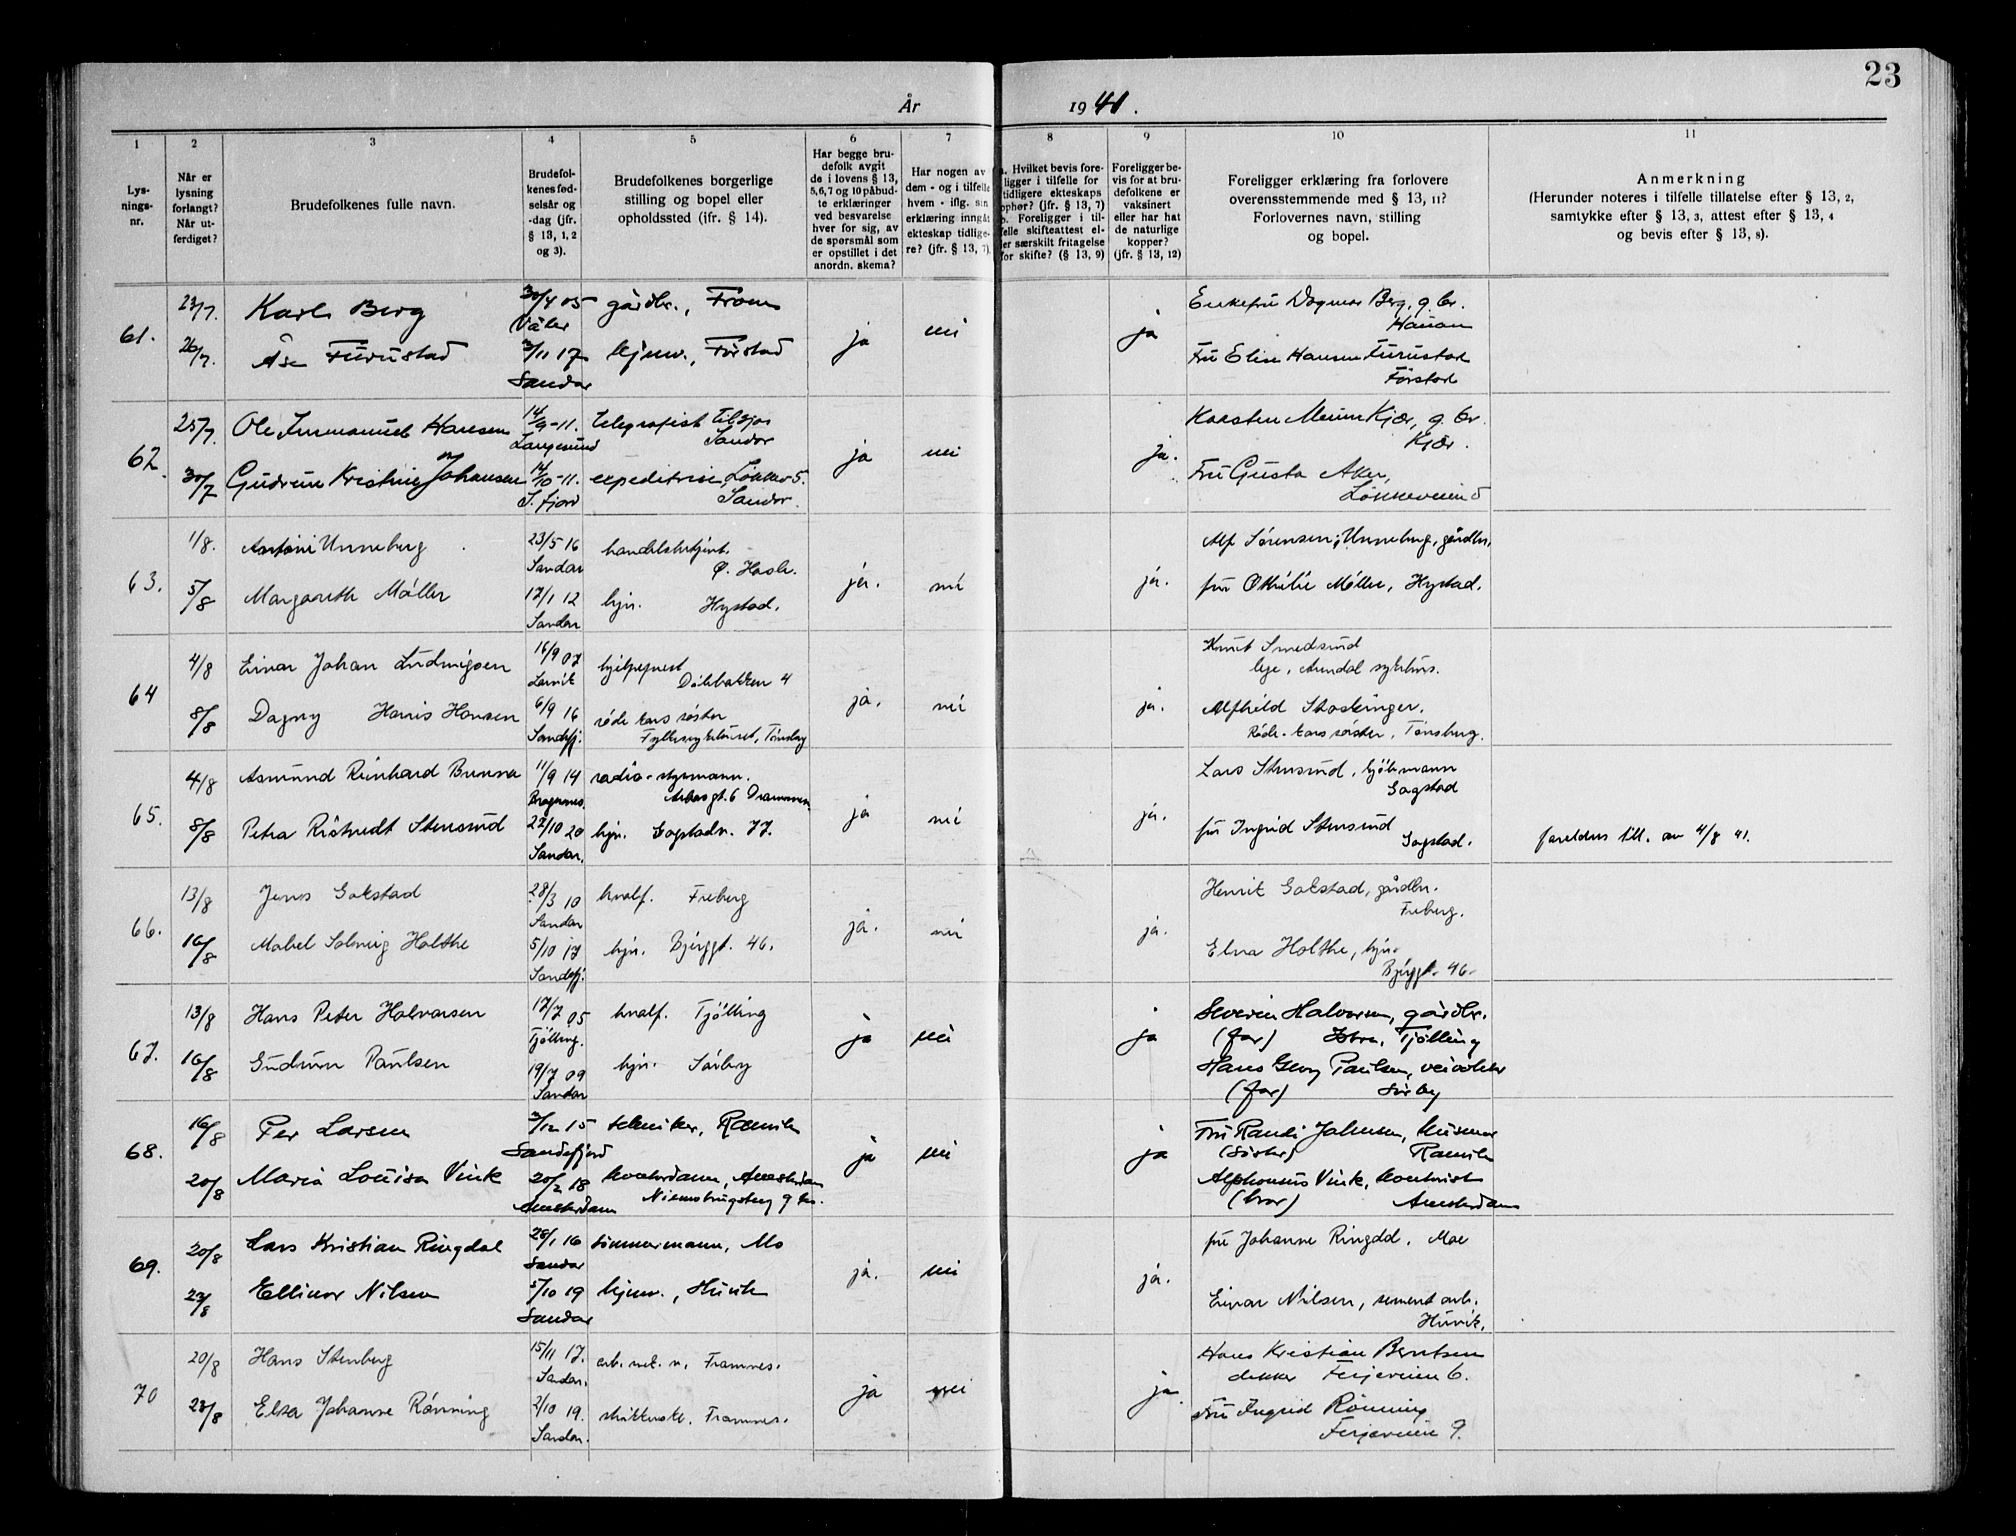 23
År 1941.
1
2
3
4
5
6
7
8
9
10
11
Lys-
nings-
nr.
Når er
lysning
forlangt?
Når ut-
ferdiget?
Brudefolkenes fulle navn.
Brudefol-
kenes fød-
selsår og
-dag (jfr.
§ 13, 1, 2
og 3).
Brudefolkenes borgerlige
stilling og bopel eller
opholdssted (jfr. § 14).
Har begge bru-
defolk avgit
de i lovens § 13,
5,6,7 og 10 påbud-
te erklæringer
ved besvarelse
hver for sig, av
de spørsmål som
er opstillet i det
anordn. skema?
Har nogen av
dem - og i tilfelle
hvem - iflg. sin
erklæring inngåt
ekteskap tidlige-
re? (jfr. § 13, 7).
a. Hvilket bevis fore-
ligger i tilfelle for
tidligere ekteskaps
ophør? (jfr. § 13, 7)
b. Foreligger i til-
felle skifteattest el-
ler særskilt fritagelse
for skifte? (§ 13, 9)
Foreligger be-
vis for at bru-
defolkene er
vaksinert
eller har hat
de naturlige
kopper?
(jfr. § 13, 12)
Foreligger erklæring fra forlovere
overensstemmende med § 13, 11?
Forlovernes navn, stilling
og bopel.
Anmerkning
(Herunder noteres i tilfelle tillatelse efter § 13, 2,
samtykke efter § 13, 3, attest efter § 13, 4
og bevis efter § 13, 8).
61.
23/7.
Karl Berg
30/4 05
Våler
gårdbr., From
ja
nei
ja
Enkefru Dagmar Berg, g.br.
26/7.
Åse Furustad
/11 17
Sandar
hjemv., Førstad
Fru Elise Hansen Furustad
Førstad
62.
25/7.
Ole Immanuel Hansen
14/9-11.
Langesund
telegrafist
Sandar
ja
nei
ja.
Karsten Kjær, g.br.
Kjær.
30/7
Gudrun Kristine Johansen
14/10-11.
S.fjord
expeditrise, Løkkev 5.
Sandar.
Fru Gusta Aker,
Løkkeveien 5
63.
1/8.
Unneberg
23/5 16
Sandar
handelsbetjent.
Ø. Hasle.
ja.
nei
ja.
Alf Sørensen, Unneberg, gårdbr.
5/8
Margareth Møller
17/1 12
Sandar
hjv. Hystad.
fru Othilie Møller, Hystad.
64
4/8
Einar Johan Ludvigsen
16/9 07
Larvik
hjelpeprest
4
ja.
nei
ja.
Knut Smedsrud
lege, Arendal sykehus.
8/8
Dagny Harris Hansen
6/9 16
Sandefj.
røde kors søster
Fylkessykehuset, Tønsberg
Alfhild
Røde-kors søster, Tønsberg.
65.
4/8
Asmund Reinhard Brunna
11/9 14
Bragernes.
radio-styrmann.
6 Drammen.
ja
nei
ja.
Lars Stensrud, sjømann
Gogstad
8/8
Petra Ristvedt Stensrud
22/10 20
Sandar.
hjv. Gogstadv. 77.
fru Ingrid Stensrud
Gogstad.
foreldres till. av 4/8 41.
66.
13/8
Jens Gokstad
28/3 10
Sandar
hvalf. Freberg
ja.
nei
ja.
Henrik Gokstad, gårdbr.
Freberg.
16/8
Mabel Solveig Holthe
5/10 17
Sandefj.
hjv. Bjerggt. 46.
Elna Holthe, hjv.
Bjerggt. 46.
67.
13/8
Hans Peter Halvorsen
17/7 05
Tjølling.
hvalf. Tjølling
ja
nei
ja
Severin Halvorsen, gårdbr.
(far) Tjølling
16/8
Gudrun Paulsen
19/7 09
Sandar
hjv. Sørby
Hans Georg Paulsen, veivokter
(far) Sørby
68.
16/8
Per Larsen
/12 15
Sandefjord
tekniker, Ranvik
ja
nei
ja
Fru Randi Johnsen, husmor
(søster) Ranvik
20/8
Maria Louisa Vink
20/2 18
Amsterdam
kontordame, Amsterdam
Alphonsus Vink, kontorist
(bror) Amsterdam
69.
20/8
Lars Kristian Ringdal
28/1 16
Sandar
tømmermann, Mo
ja.
nei
ja.
fru Johanne Ringdal. Moe
23/8
Ellinor Nilsen
5/10 19
Sandar
hjemv., Huvik
Einar Nilsen, sement arb.
Huvik.
70
20/8
Hans Stenberg
15/11 17.
Sandar.
arb. mek. v. Framnes.
ja
nei
ja.
Hans Kristian Berntsen
dekker Ferjeveien 6.
23/8
Elsa Johanne Rønning
2/10 19.
Sandar.
Framnes.
Fru Ingrid Rønning
Ferjeveien 9.